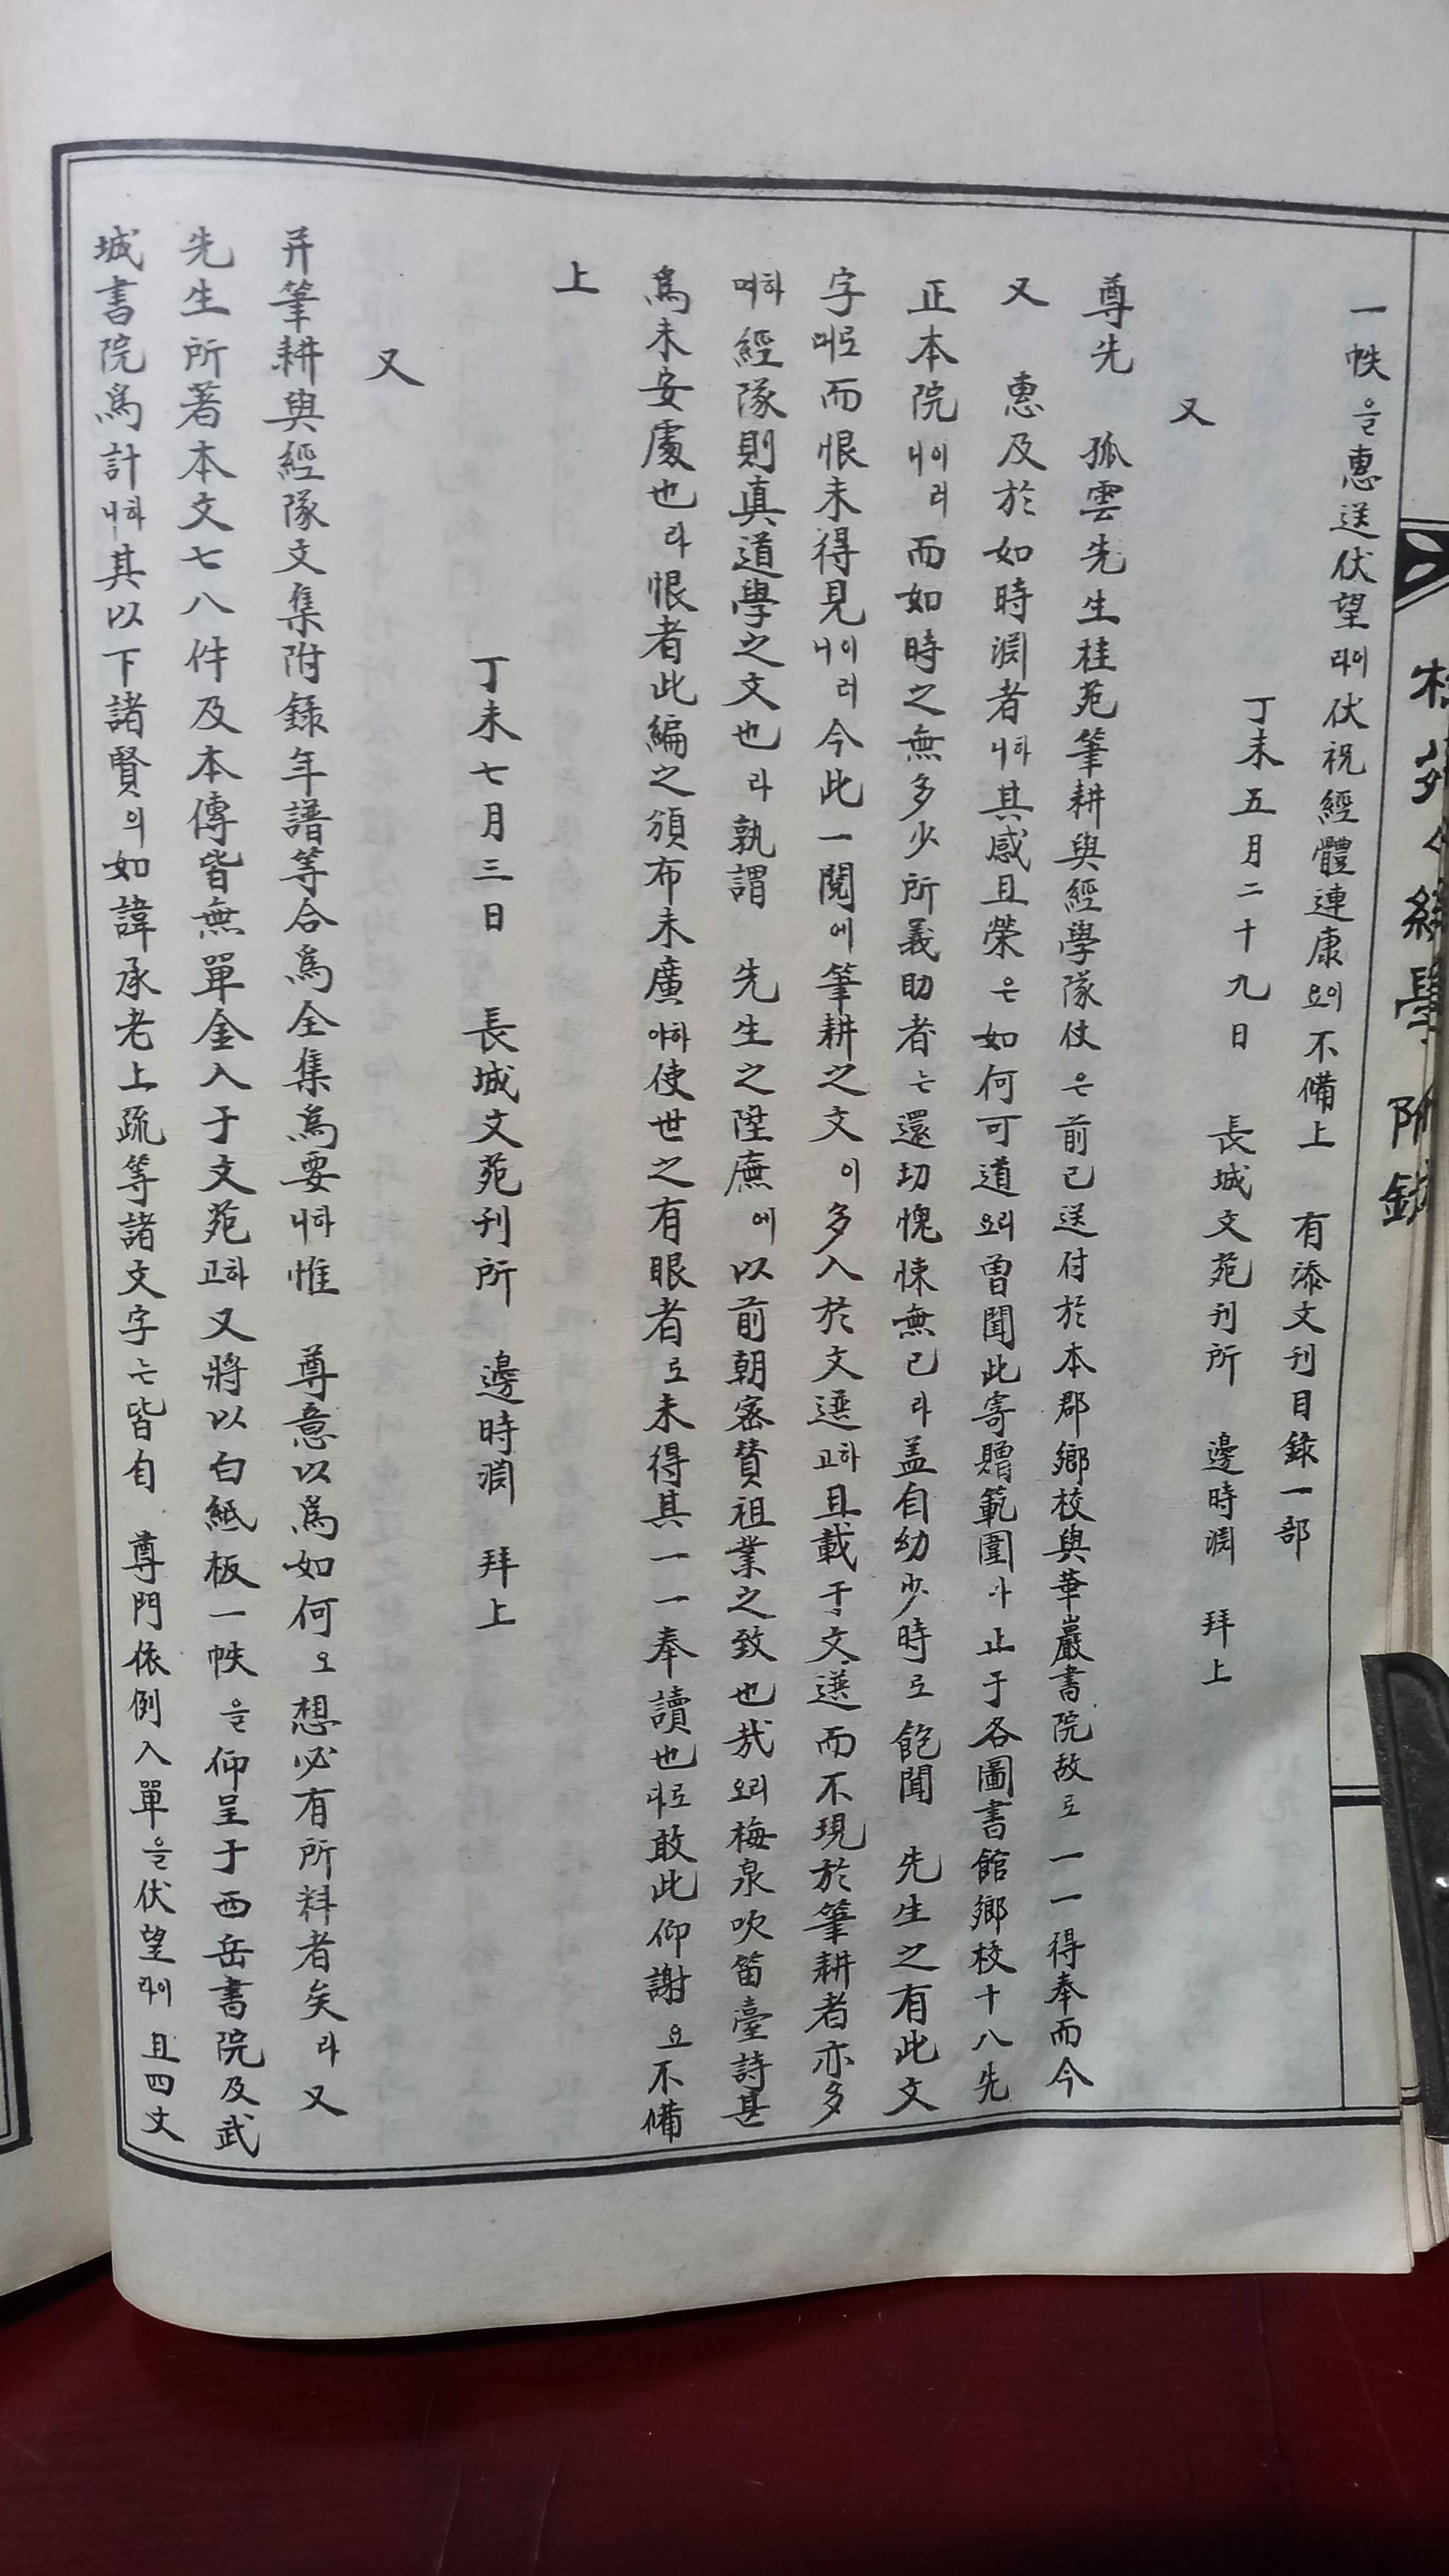 一帙을惠送伏望이라伏祝經體連康이요不備上 有添文刊目錄一部
丁未五月二十九日 長城文苑刊所 邊時淵 拜上
又
尊先 孤雲先生桂苑筆耕與經學隊仗은前已送付於本郡鄉校與華巖書院故로一一得奉而今
又 惠及於如時淵者하니其感且榮은如何可道리요曾聞此寄贈範圍가止于各圖書館鄉校十八先
正本院이러니而如時之無多少所義助者는還切愧悚無已라盖自幼少時로飽聞 先生之有此文
字로대而恨未得見이러니今此一閱에筆耕之文이多入於文選하고且載于文選而不現於筆耕者亦多
하며經隊則真道學之文也라孰謂 先生之陞廡에以前朝密賛祖業之致也哉리요梅泉吹笛臺詩甚
爲未安處也라恨者此編之頒布未廣하야使世之有眼者로未得其一一奉讀也로다敢此仰謝요不備
上
丁未七月三日 長城文苑刊所 邊時淵 拜上
又
幷筆耕與經隊文集附錄年譜等合爲全集爲要하니惟 尊意以爲如何오想必有所料者矣라又
先生所著本文七八件及本傳皆無單金入于文苑하고又將以白紙板一帙을仰呈于西岳書院及武
城書院爲計하니其以下諸賢의如諱承老上疏等諸文字는皆自 尊門依例入單을伏望이라且四丈
附